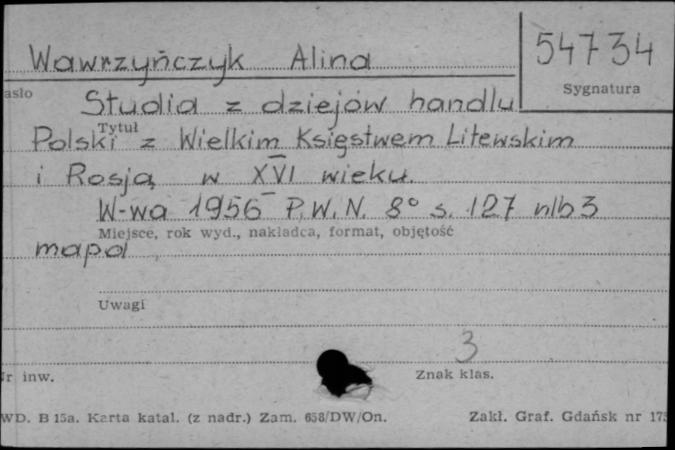 Wawrzyńczyk Alina
54734
Sygnatura
asło
Studia z dziejów handlu
Tytuł
Polski z Wielkim Księstwem Litewskim
i Rosją w XVI wieku.
W-wa 1956 P.W.N. 8° s. 127 nlb 3
Miejsce, rok wyd., nakładca, format, objętość
mapa
Uwagi
3
r inw.
Znak klas.
WD. B 15a. Karta katal. (z nadr.) Zam. 658/DW/On.
Zakł. Graf. Gdańsk nr 175